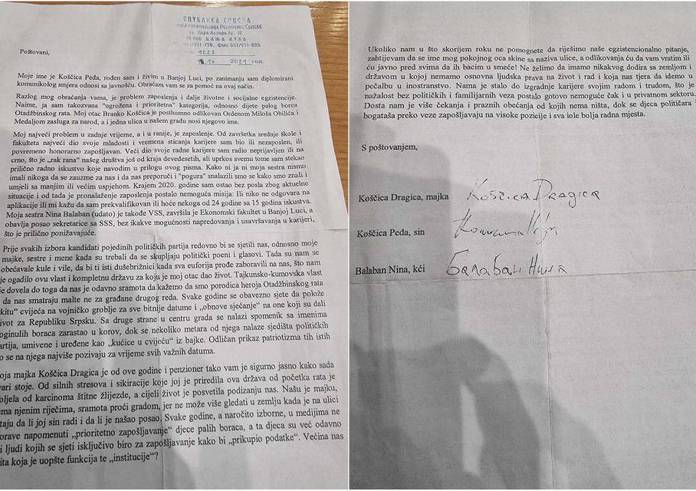 REPUBLIKA SRPSKA
Poštovani,
Moje ime je Koščica Peđa, rođen sam i živim u Banjoj Luci, po zanimanju sam diplomirani
komunikolog smjera odnosi sa javnošću. Obraćam vam se za pomoć na ovaj način.
Razlog mog obraćanja vama, je problem zaposlenja i dalje životne i socijalne egzistencije.
Naime, ja sam takozvana "ugrožena i prioritetna" kategorija, odnosno dijete palog borca
Otadžbinskog rata. Moj otac Branko Koščica je posthumno odlikovan Ordenom Miloša Obilića i
Medaljom zasluga za narod, a i jedna ulica u našem gradu nosi njegovo ime.
Moj najveći problem u zadnje vrijeme, a i u ranije, je zaposlenje. Od završetka srednje škole i
fakulteta najveći dio svoje mladosti i vremena sticanja karijere sam bio ili nezaposlen, ili
povremeno honorarno zapošljavan. Veći dio svoje radne karijere sam radio neprijavljen ili na
crno, što je „rak rana" našeg društva još od kraja devedesetih, ali uprkos svemu tome sam stekao
prilično radno iskustvo koje navodim u prilogu ovog pisma. Kako ni ja ni moja sestra nismo
imali nikoga da se zauzme za nas i da nas preporuči i "pogura" snalazili smo se kako smo znali i
umjeli sa manjim ili većim uspjehom. Krajem 2020. godine sam ostao bez posla zbog aktuelne
situacije i od tada je pronalaženje zaposlenja postalo nemoguća misija: Ili niko ne odgovara na
aplikacije ili mi kažu da sam prekvalifikovan ili hoće nekoga od 24 godine sa 15 godina iskustva.
Moja sestra Nina Balaban (udato) je takođe VSS, završila je Ekonomski fakultet u Banjoj Luci, a
obavlja posao sekretarice sa SSS, bez ikakve mogućnosti napredovanja i usavršavanja u karijeri,
što je prilično ponižavajuće.
Prije svakih izbora kandidati pojedinih političkih partija redovno bi se sjetili nas, odnosno moje
majke, sestre i mene kada su trebali da se skupljaju politički poeni i glasovi. Tada su nam se
obećavale kule i vile, da bi ti isti dušebrižnici kada sva euforija prođe zaboravili na nas, što nam
je ogadilo ovu vlast i kompletnu državu za koju je moj otac dao život. Tajkunsko-kumovska vlast
je dovela do toga da nas je odavno sramota da kažemo da smo porodica heroja Otadžbinskog rata
da nas smatraju malte ne za građane drugog reda. Svake godine se obavezno sjete da polože
kitu" cvijeća na vojničko groblje za sve bitnije datume i „obnove sjećanje" na one koji su dali
život za Republiku Srpsku. Sa druge strane u centru grada se nalazi spomenik sa imenima
poginulih boraca zarastao u korov, dok se nekoliko metara od njega nalaze sjedišta političkih
partija, umivene i uređene kao „kućice u cvijeću" iz bajke. Odličan prikaz patriotizma tih istih
o se na njega najviše pozivaju za vrijeme svih važnih datuma.
oja majka Koščica Dragica je od ove godine i penzioner tako vam je sigurno jasno kako sada
vari stoje. Od silnih stresova i sikiracije koje joj je priredila ova država od početka rata je
oljela od karcinoma štitne žlijezde, a cijeli život je posvetila podizanju nas. Našu je majku,
ma njenim riječima, sramota proći gradom, jer ne može više gledati u zemlju kada je na ulici
taju da li joj sin radi i da li je našao posao. Svake godine, a naročito izborne, u medijima ne
orave napomenuti „prioritetno zapošljavanje" djece palih boraca, a ta djeca su već odavno
i ljudi kojih se sjeti isključivo biro za zapošljavanje kako bi „prikupio podatke". Većina nas
ita koja je uopšte funkcija te „institucije"?
Ukoliko nam u što skorijem roku ne pomognete da riješimo naše egzistencionalno pitanje,
zahtijevam da se ime mog pokojnog oca skine sa naziva ulice, a odlikovanja ću da vam vratim ili
ću javno pred svima da ih bacim u smeće! Ne želimo da imamo nikakvog dodira sa zemljom i
državom u kojoj nemamo osnovna ljudska prava na život i rad i koja nas tjera da idemo u
počalbu u inostranstvo. Nama je stalo do izgradnje karijere svojim radom i trudom, što je
nažalost bez političkih i familijarnih veza postalo gotovo nemoguće čak i u privatnom sektoru.
Dosta nam je više čekanja i praznih obećanja od kojih nema ništa, dok se djeca političara
bogataša preko veze zapošljavaju na visoke pozicije i sva iole bolja radna mjesta.
S poštovanjem,
Koščica Dragica, majka Koščica Dragica
Koščica Peđa, sin
Balaban Nina, kći Балабан Нина